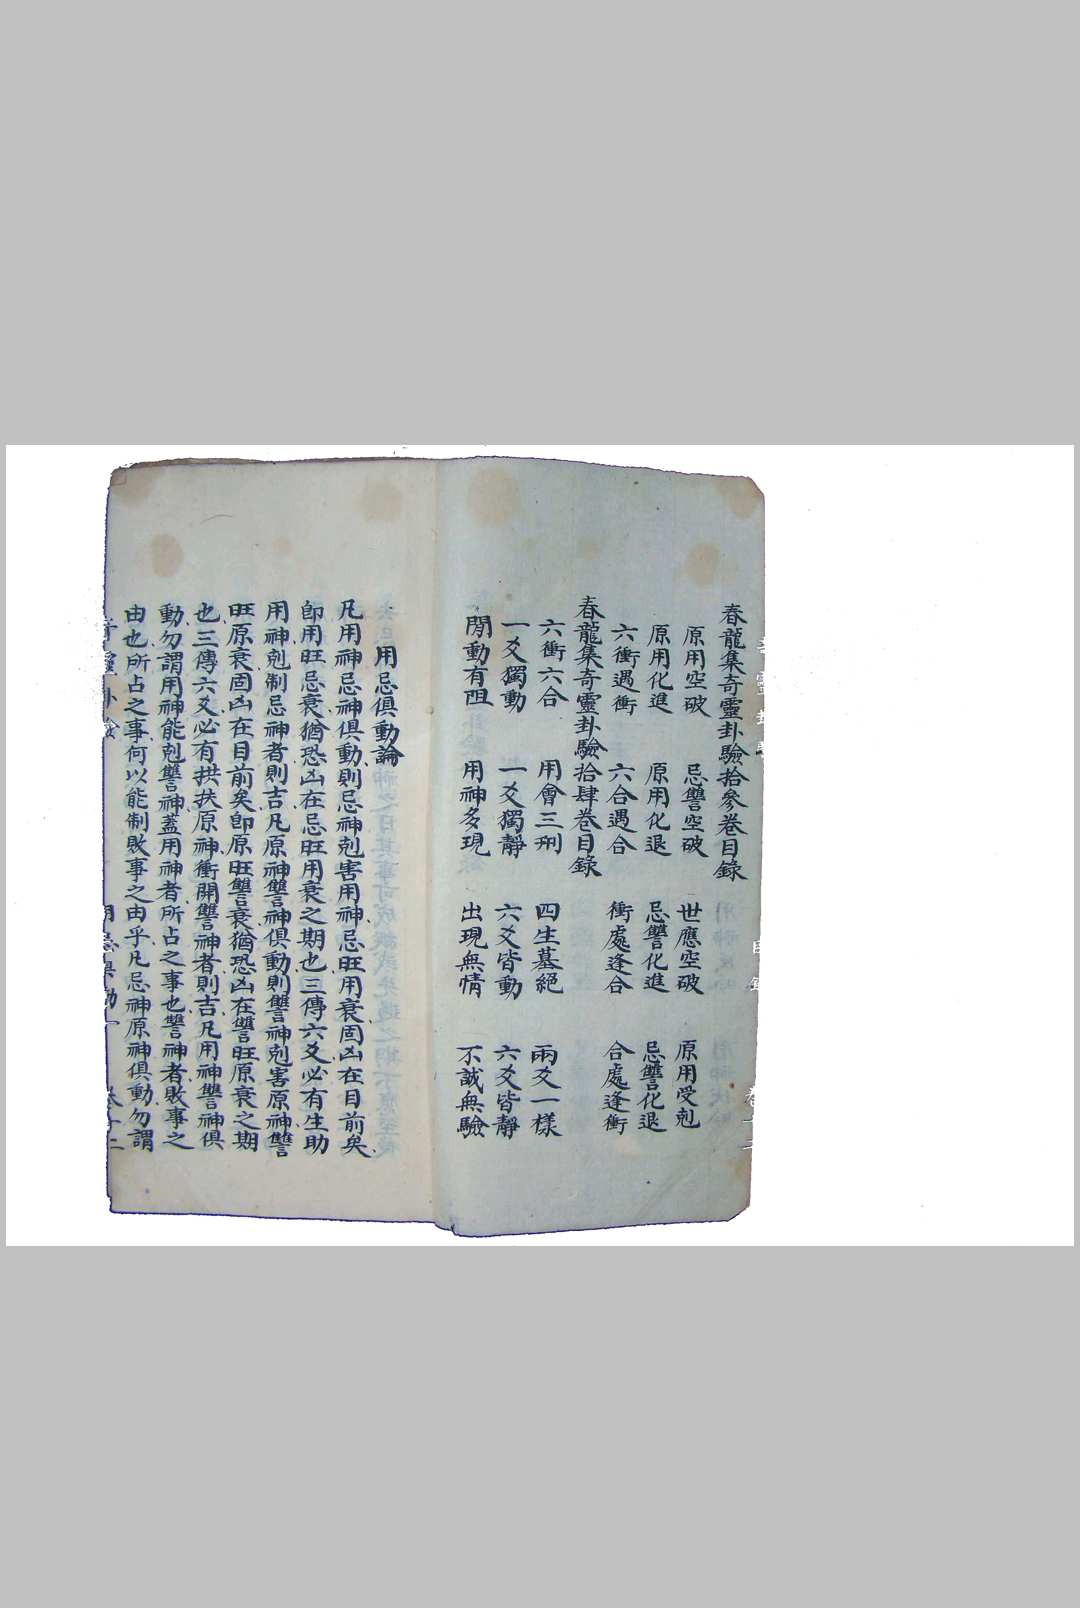 春龍集奇靈卦驗拾參卷目錄
原用空破 忌讐空破 世應空破 原用受剋
原用化進 原用化退 忌讐化進 忌讐化退
六衝遇衝 六合遇合 衝處逢合 合處逢衝
春龍集奇靈卦驗拾肆卷目錄
六衝六合 用會三刑 四生墓絕 兩爻一樣
一爻獨動 一爻獨靜 六爻皆動 六爻皆靜
閑動有阻 用神多現 出現無情 不誠無驗
用忌俱動論
凡用神忌神俱動則忌神剋害用神忌旺用衰固凶在目前矣
卽用旺忌衰猶恐凶在忌旺用衰之期也三傳六爻必有生助
用神剋制忌神者則吉凡原神讐神俱動則讐神剋害原神讐
旺原衰固凶在目前矣卽原旺讐衰猶恐凶在讐旺原衰之期
也三傳六爻必有拱扶原神衝開讐神者則吉凡用神讐神俱
動勿謂用神能剋讐神蓋用神者所占之事也讐神者敗事之
由也所占之事何以能制敗事之由乎凡忌神原神俱動勿謂